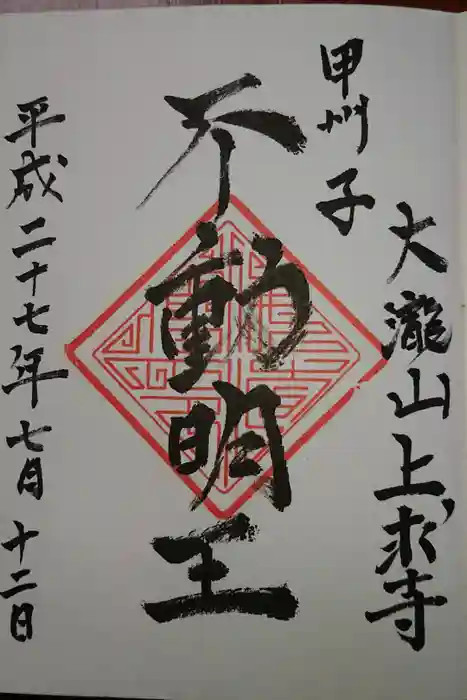 甲州
大瀧山上求寺
不動明王
平成二十七年七月十二日